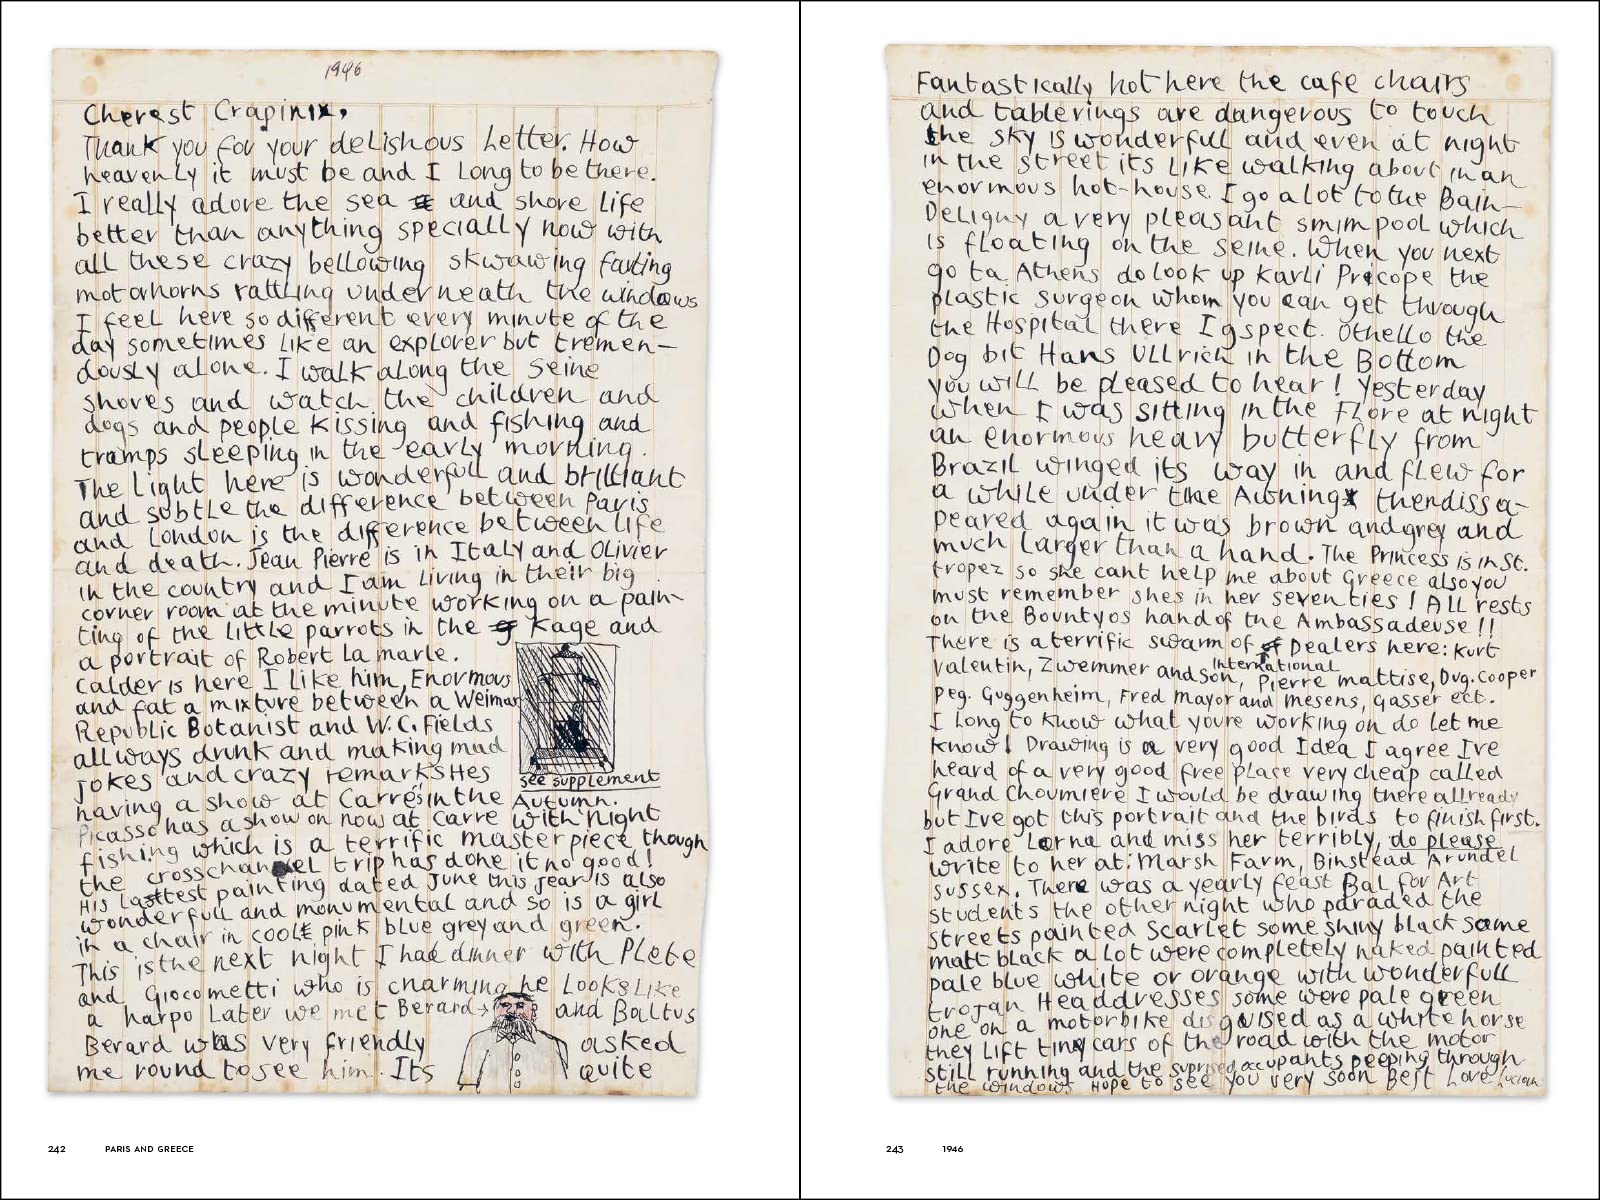 1946
Cherest Crapinix,
Thank you for your delishous Letter. How
heavenLy it must be and I Long to be there.
I really adore the sea and shore Life
better than anything specially now with
all these crazy bellowing skwawing farting
motorhorns rattLing underneath the windows
I feel here so different every minute of the
day sometimes Like an explorer but tremen-
dousLy alone. I walk along the Seine
shores and watch the children and
dogs and people kissing and fishing and
tramps sleeping in the early morning.
The Light here is wonderfull and brilliant
and subtLe the difference between Paris
and London is the difference between Life
and death. Jean Pierre is in Italy and Olivier
in the country and I am Living in their big
corner room at the minute working on a pain-
ting of the Little parrots in the Kage and
a portrait of Robert La marle.
Calder is here I Like him, Enormous
and fat a mixture between a Weimar
Republic Botanist and W.C. Fields
allways drunk and making mad
jokes and crazy remarks Hes
see supplement
having a show at Carrés in the Autumn.
Picasso has a show on now at Carre with Night
fishing which is a terrific masterpiece though
the crosschannel trip has done it no good!
His lasttest painting dated June this year is also
wonderfull and monumental and so is a girl
in a chair in cooLE pink blue grey and green.
This is the next night I had dinner with PLete
and Giocometti who is charming he Looks Like
a harpo Later we met Berard→ and Baltus
Berard was very friendly asked
me round to see him. Its quite
242 PARIS AND GREECE
Fantastically hot here the cafe chairs
and tablerings are dangerous to touch
the sky is wonderful and even at night
in the street its Like walking about in an
enormous hot-house. I go a lot to the Bain-
Deligny a very pleasant smimpool which
is floating on the seine. When you next
go to Athens do look up Karli Procope the
plastic surgeon whom you can get through
the Hospital there I gspect. Othello the
Dog bit Hans ULLrich in the Bottom
you wiLL be pleased to hear! Yesterday
when I was sitting in the FLore at night
an enormous heavy butterfly from
Brazil winged its way in and flew for
a while under the Awning thendissa-
peared again it was brown and grey and
much Larger than a hand. The Princess is in St.
tropez so she cant help me about Greece also you
must remember shes in her seventies! ALL rests
on the Bountyos hand of the Ambassadeuse!!
There is a terrific swarm of International Dealers here: Kurt
Valentin, Zwemmer and Son, Pierre mattise, Dug. Cooper
Peg. Guggenheim, Fred Mayor and mesens, Gasser ect.
I Long to know what youre working on do Let me
know! Drawing is a very good Idea I agree Ive
heard of a very good free place very cheap called
Grand Choumiere I would be drawing there allready
but Ive got this portrait and the birds to finish first.
I adore Lorna and miss her terribly, do please
write to her at: Marsh Farm, Binstead Arundel
Sussex. There was a yearly feast Bal for Art
students the other night who paraded the
streets painted Scarlet some shiny black some
matt black a Lot were completely naked painted
pale blue white or orange with wonderfuLL
trojan Headdresses some were pale green
one on a motorbike disguised as a white horse
they Lift tiny cars of the road with the motor
still running and the suprised occupants peeping through
the windows Hope to see you very soon Best Love Lucian
243 1946